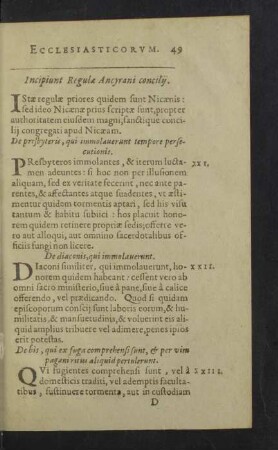 ECCLESIASTICORVM. 49
Incipiunt Regulæ Ancyrani concilij.
IStæ regulæ priores quidem sunt Nicænis:
sed ideo Nicænæ prius scriptæ sunt, propter
authoritatem eiusdem magni, sanctique conci-
lij congregati apud Nicæam.
De presbyteris, qui immolauerunt tempore perse-
cutionis.
PResbyteros immolantes, & iterum lucta- XXI.
men adeuntes: si hoc non per illusionem
aliquam, sed ex veritate fecerint, nec ante pa-
rentes, & affectantes atque suadentes, vt æsti-
mentur quidem tormentis aptari, sed his visu
tantum & habitu subiici: hos placuit hono-
rem quidem retinere propriæ sedis; offerre ve-
ro aut alloqui, aut omnino sacerdotalibus of-
ficiis fungi non licere.
De diaconis, qui immolauerunt.
DIaconi similiter, qui immolauerunt, ho- XXII.
norem quidem habeant: cessent vero ab
omni sacro ministerio, siue à pane, siue à calice
offerendo, vel prædicando. Quod si quidam
episcoporum conscij sunt laboris eorum, & hu-
militatis, & mansuetudinis, & voluerint eis ali-
quid amplius tribuere vel adimere, penes ipsos
erit potestas.
De his, qui ex fuga comprehensi sunt, & per vim
paganis ritus aliquid pertulerunt.
QVi fugientes comprehensi sunt, vel à XXIII.
domesticis traditi, vel ademptis faculta-
tibus, sustinuere tormenta, aut in custodiam
D